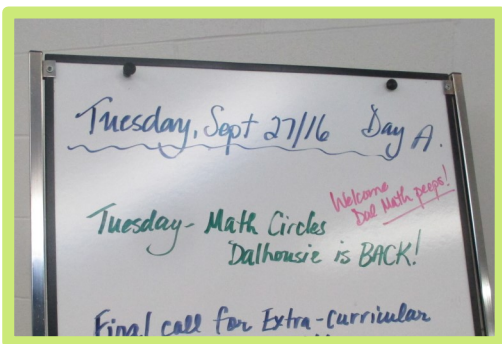 Tuesday, Sept 27/16 Day A.
Welcome
Dal Math peeps!
Tuesday - Math Circles
Dalhousie is BACK!
Final call for Extra-Curricular